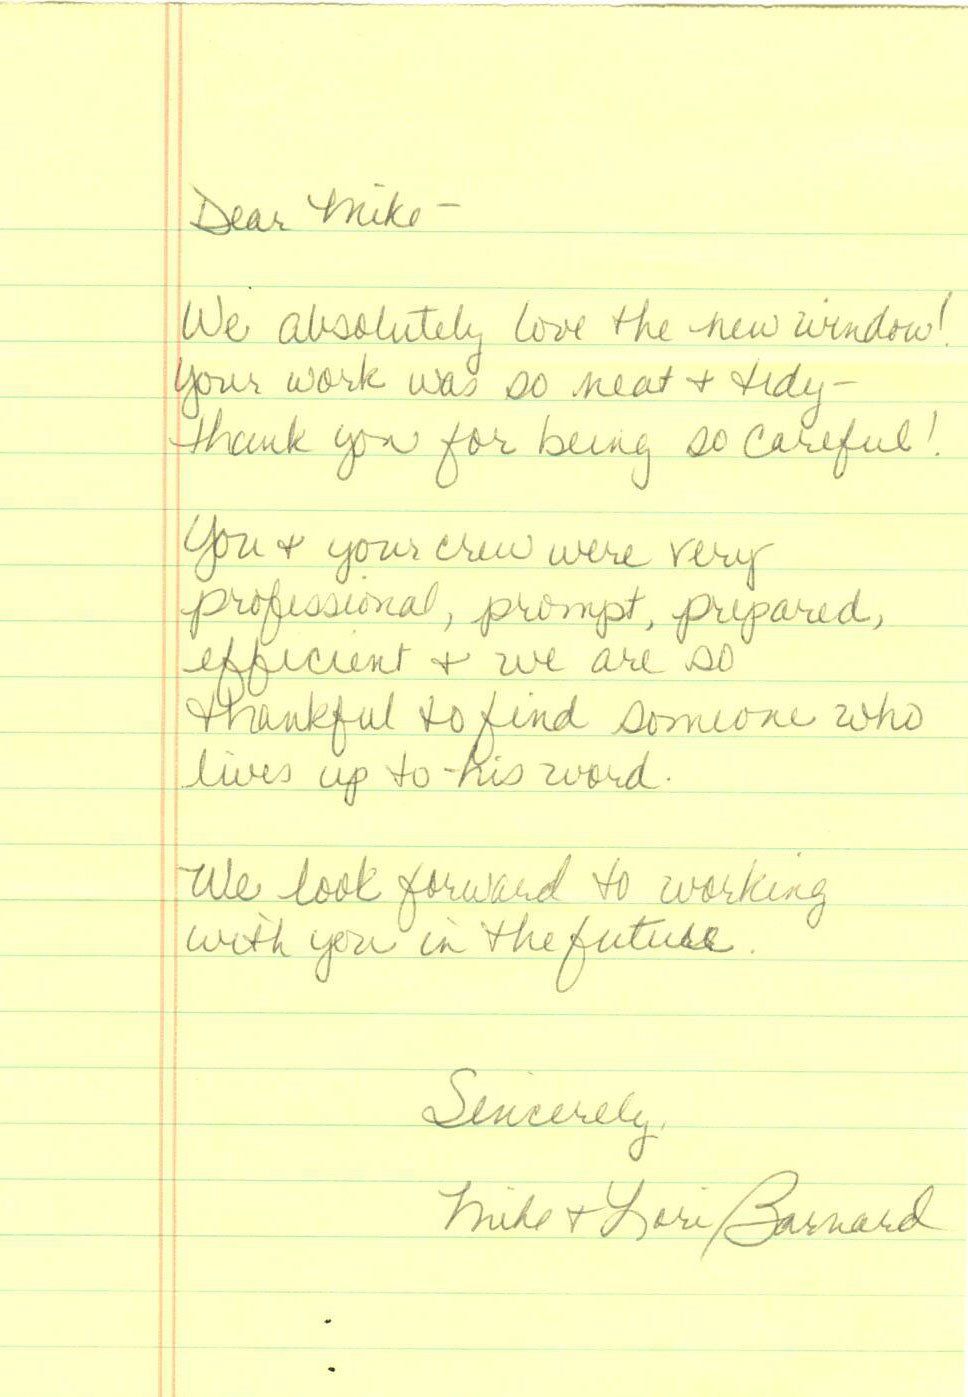 Dear Mike -
We absolutely love the new window!
Your work was so neat + tidy -
thank you for being so careful!
You + your crew were very
professional, prompt, prepared,
efficient + we are so
thankful to find someone who
lives up to his word.
We look forward to working
with you in the future.
Sincerely,
Mike + Lori Barnard